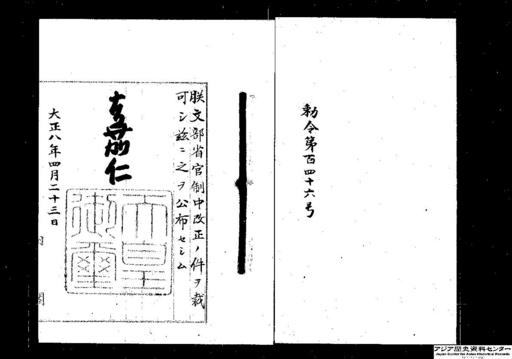 勅令第百四十六号
朕文部省官制中改正ノ件ヲ裁
可シ茲ニ之ヲ公布セシム
嘉仁
天皇
御璽
大正八年四月二十三日
内閣
アジア歴史資料センター
Japan Center for Asian Historical Records